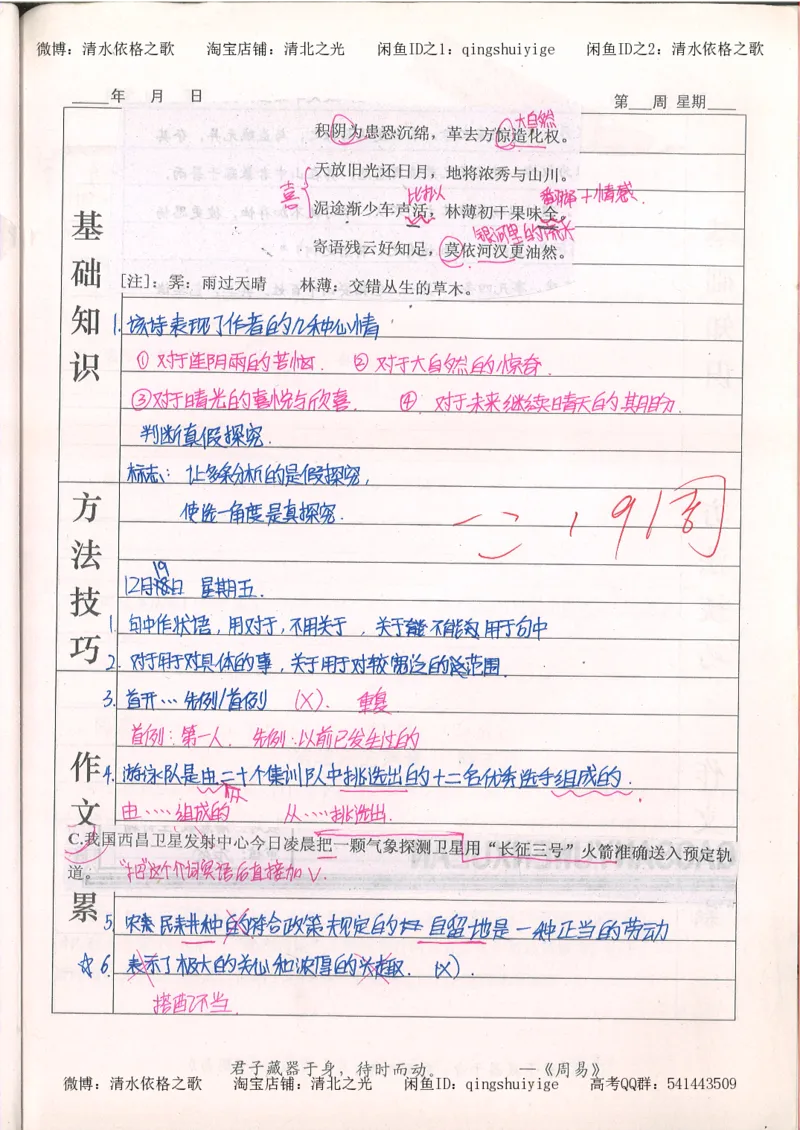 微博：清水依格之歌 淘宝店铺：清北之光 闲鱼ID之1：qingshuiyige 闲鱼ID之2：清水依格之歌
年 月 日 第 周 星期
大自然
积阴为患恐沉绵，革去方惊造化权。
天放旧光还日月，地将浓秀与山川。
喜 比拟 翻译+情感
泥途渐少车声活，林薄初干果味全。
银河里的流水
寄语残云好知足，莫依河汉更油然。
[注]：霁：雨过天晴 林薄：交错丛生的草木。
基础知识
1. 该诗表现了作者的几种心情
① 对于连阴雨的苦恼. ② 对于大自然的惊奇.
③ 对于晴光的喜悦与欣喜. ④ 对于未来继续晴天的期盼.
判断真假探究.
标志：让多条分析的是假探究，
使选一角度是真探究.
方法技巧
12月19日 星期五.
1. 句中作状语，用对于，不用关于，关于不能用于句中
2. 对于用于对具体的事，关于用于对较宽泛的范围.
3. 首开…先例/首例 (X). 重复
首例：第一人. 先例：以前已发生过的
作文累
4. 游泳队是由二十个集训队中挑选出的十二名优秀选手组成的.
由……组成的 从……挑选出.
C.我国西昌卫星发射中心今日凌晨把一颗气象探测卫星用“长征三号”火箭准确送入预定轨
道。 “把”这个介词宾语后直接加V.
5. 农民种的符合政策规定的自留地是一种正当的劳动
☆6. 表示了极大的关心和浓厚的兴趣. (X).
搭配不当.
君子藏器于身，待时而动。 —《周易》
微博：清水依格之歌 淘宝店铺：清北之光 闲鱼ID：qingshuiyige 高考QQ群：541443509